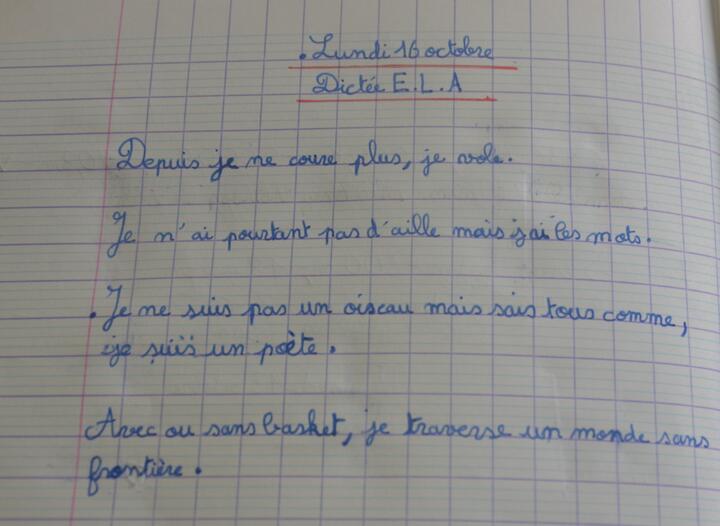 .Lundi 16 octobre
Dictée E.L.A
Depuis je ne coure plus, je vole.
Je n'ai pourtant pas d'aille mais j'ai les mots.
.Je ne suis pas un oiseau mais sais tous comme,
je suis un poète.
Avec ou sans basket, je traverse un monde sans
frontière.